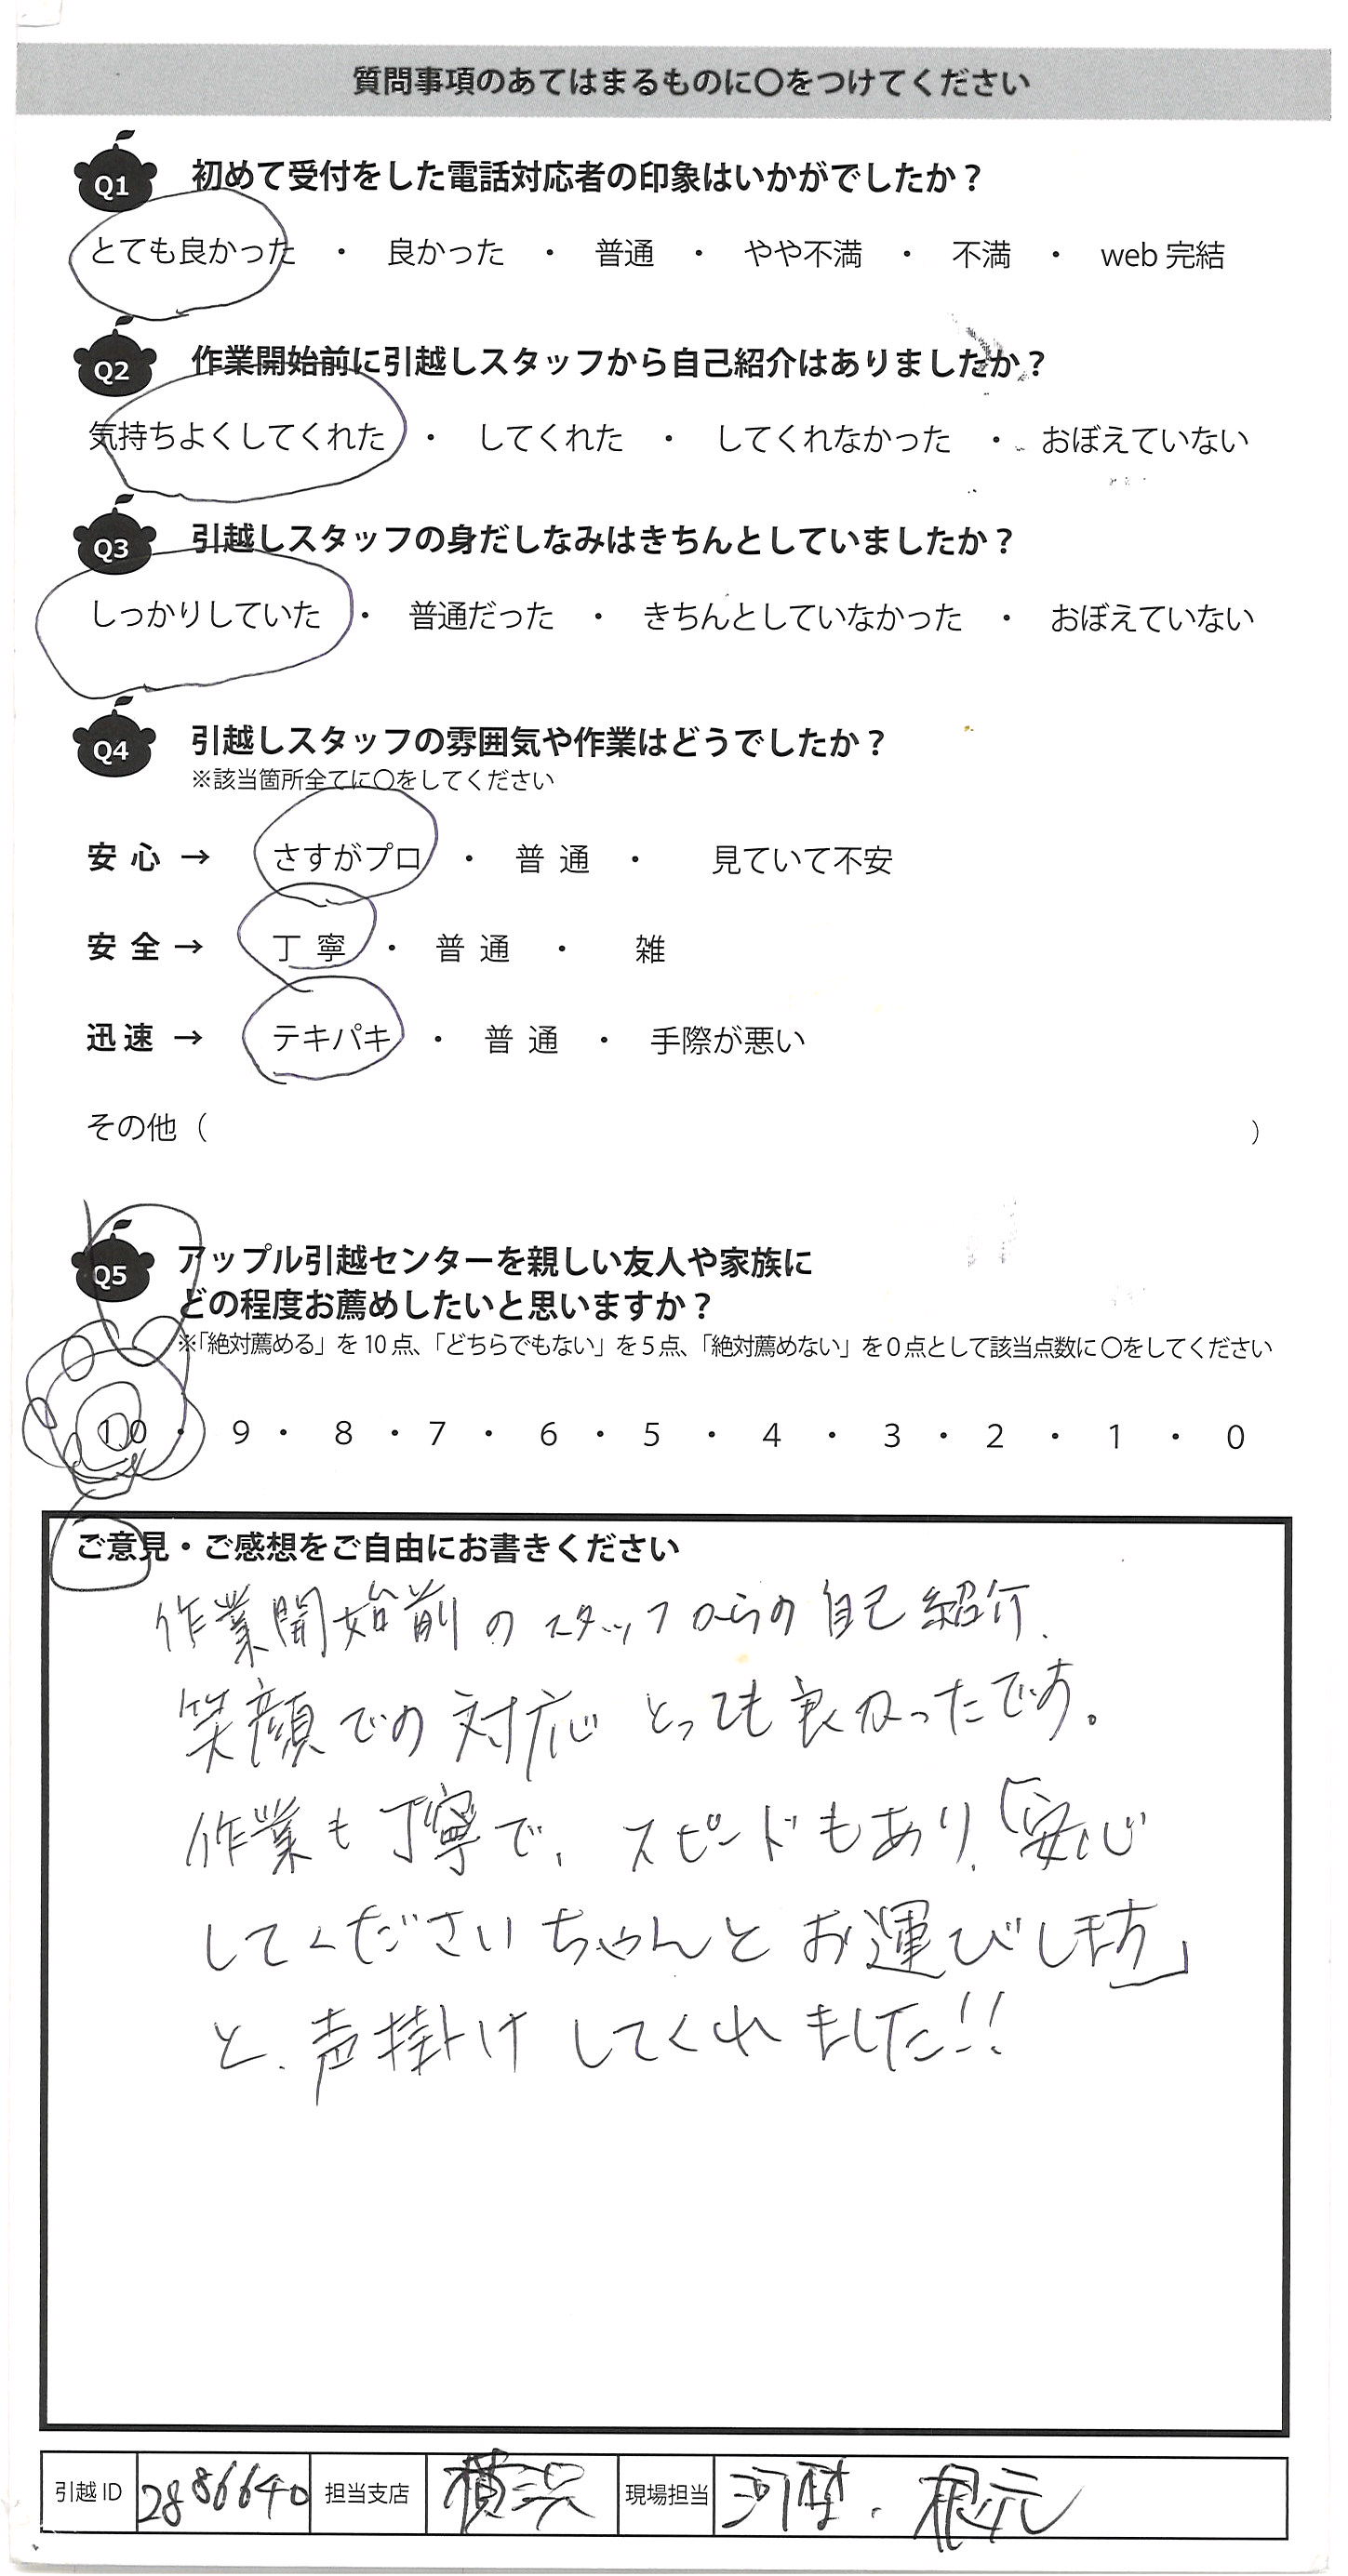 質問事項のあてはまるものに〇をつけてください
Q1 初めて受付をした電話対応者の印象はいかがでしたか？
とても良かった ・ 良かった ・ 普通 ・ やや不満 ・ 不満 ・ web 完結
Q2 作業開始前に引越しスタッフから自己紹介はありましたか？
気持ちよくしてくれた ・ してくれた ・ してくれなかった ・ おぼえていない
Q3 引越しスタッフの身だしなみはきちんとしていましたか？
しっかりしていた ・ 普通だった ・ きちんとしていなかった ・ おぼえていない
Q4 引越しスタッフの雰囲気や作業はどうでしたか？
※該当箇所全てに〇をしてください
安心 → さすがプロ ・ 普通 ・ 見ていて不安
安全 → 丁寧 ・ 普通 ・ 雑
迅速 → テキパキ ・ 普通 ・ 手際が悪い
その他（ ）
Q5 アップル引越センターを親しい友人や家族に
どの程度お薦めしたいと思いますか？
※「絶対薦める」を10点、「どちらでもない」を5点、「絶対薦めない」を0点として該当点数に〇をしてください
10 ・ 9 ・ 8 ・ 7 ・ 6 ・ 5 ・ 4 ・ 3 ・ 2 ・ 1 ・ 0
ご意見・ご感想をご自由にお書きください
作業開始前のスタッフからの自己紹介、
笑顔での対応とっても良かったです。
作業も丁寧で、スピードもあり、「安心
してくださいちゃんとお運びします」
と、声掛けしてくれました!!
引越ID 2886640 担当支店 横浜 現場担当 河野、根元